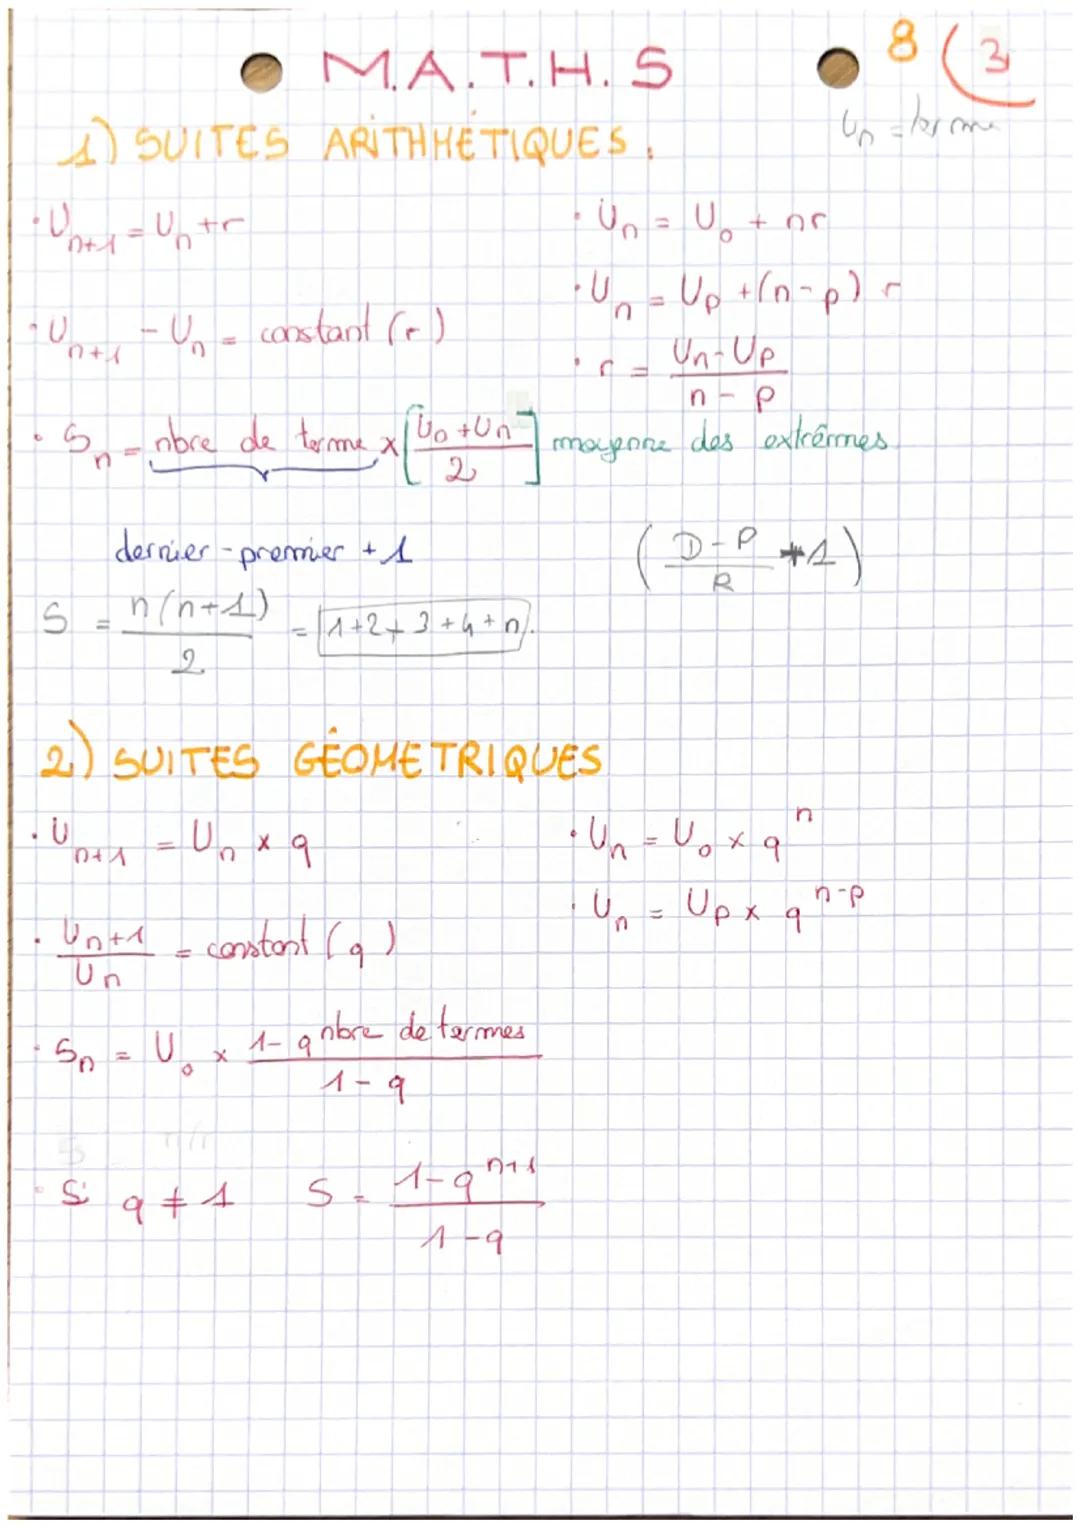 M.A.T.H.S
8 (3
Un = terme
1) SUITES ARITHMÉTIQUES.
· Un+1 = Un + r
· Un = U0 + nr
· Un = Up + (n-p) r
· Un+1 - Un = constant (r)
· r = (Un - Up)/(n - p)
· Sn = nbre de terme x [(U0 + Un)/2] moyenne des extrêmes
dernier - premier + 1
((D-P)/R + 1)
S = n(n+1)/2 = 1+2+3+4+n.
2) SUITES GÉOMETRIQUES
· Un+1 = Un x q
· Un = U0 x q^n
· Un = Up x q^(n-p)
· Un+1/Un = constant (q)
· Sn = U0 x (1-q^(nbre de termes))/(1-q)
· Si q ≠ 1 S = (1-q^(n+1))/(1-q)